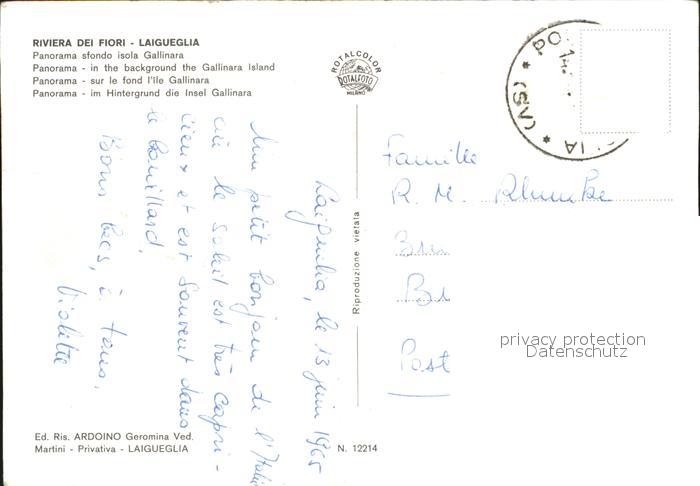 RIVIERA DEI FIORI - LAIGUEGLIA
Panorama sfondo isola Gallinara
Panorama - in the background the Gallinara Island
Panorama - sur le fond l'Ile Gallinara
Panorama - im Hintergrund die Insel Gallinara
ROTALCOLOR
ROTALFOTO
MILANO
Laigueglia, le 13 juin 1965
Un petit bonjour de l'Italie
où le soleil est très capri-
cieux et est souvent dans
le brouillard.
Bons becs, à tous,
Violette
Riproduzione vietata
Famille
R. M.
Post
(SV)
privacy protection
Datenschutz
Ed. Ris. ARDOINO Geromina Ved.
Martini - Privativa - LAIGUEGLIA
N. 12214